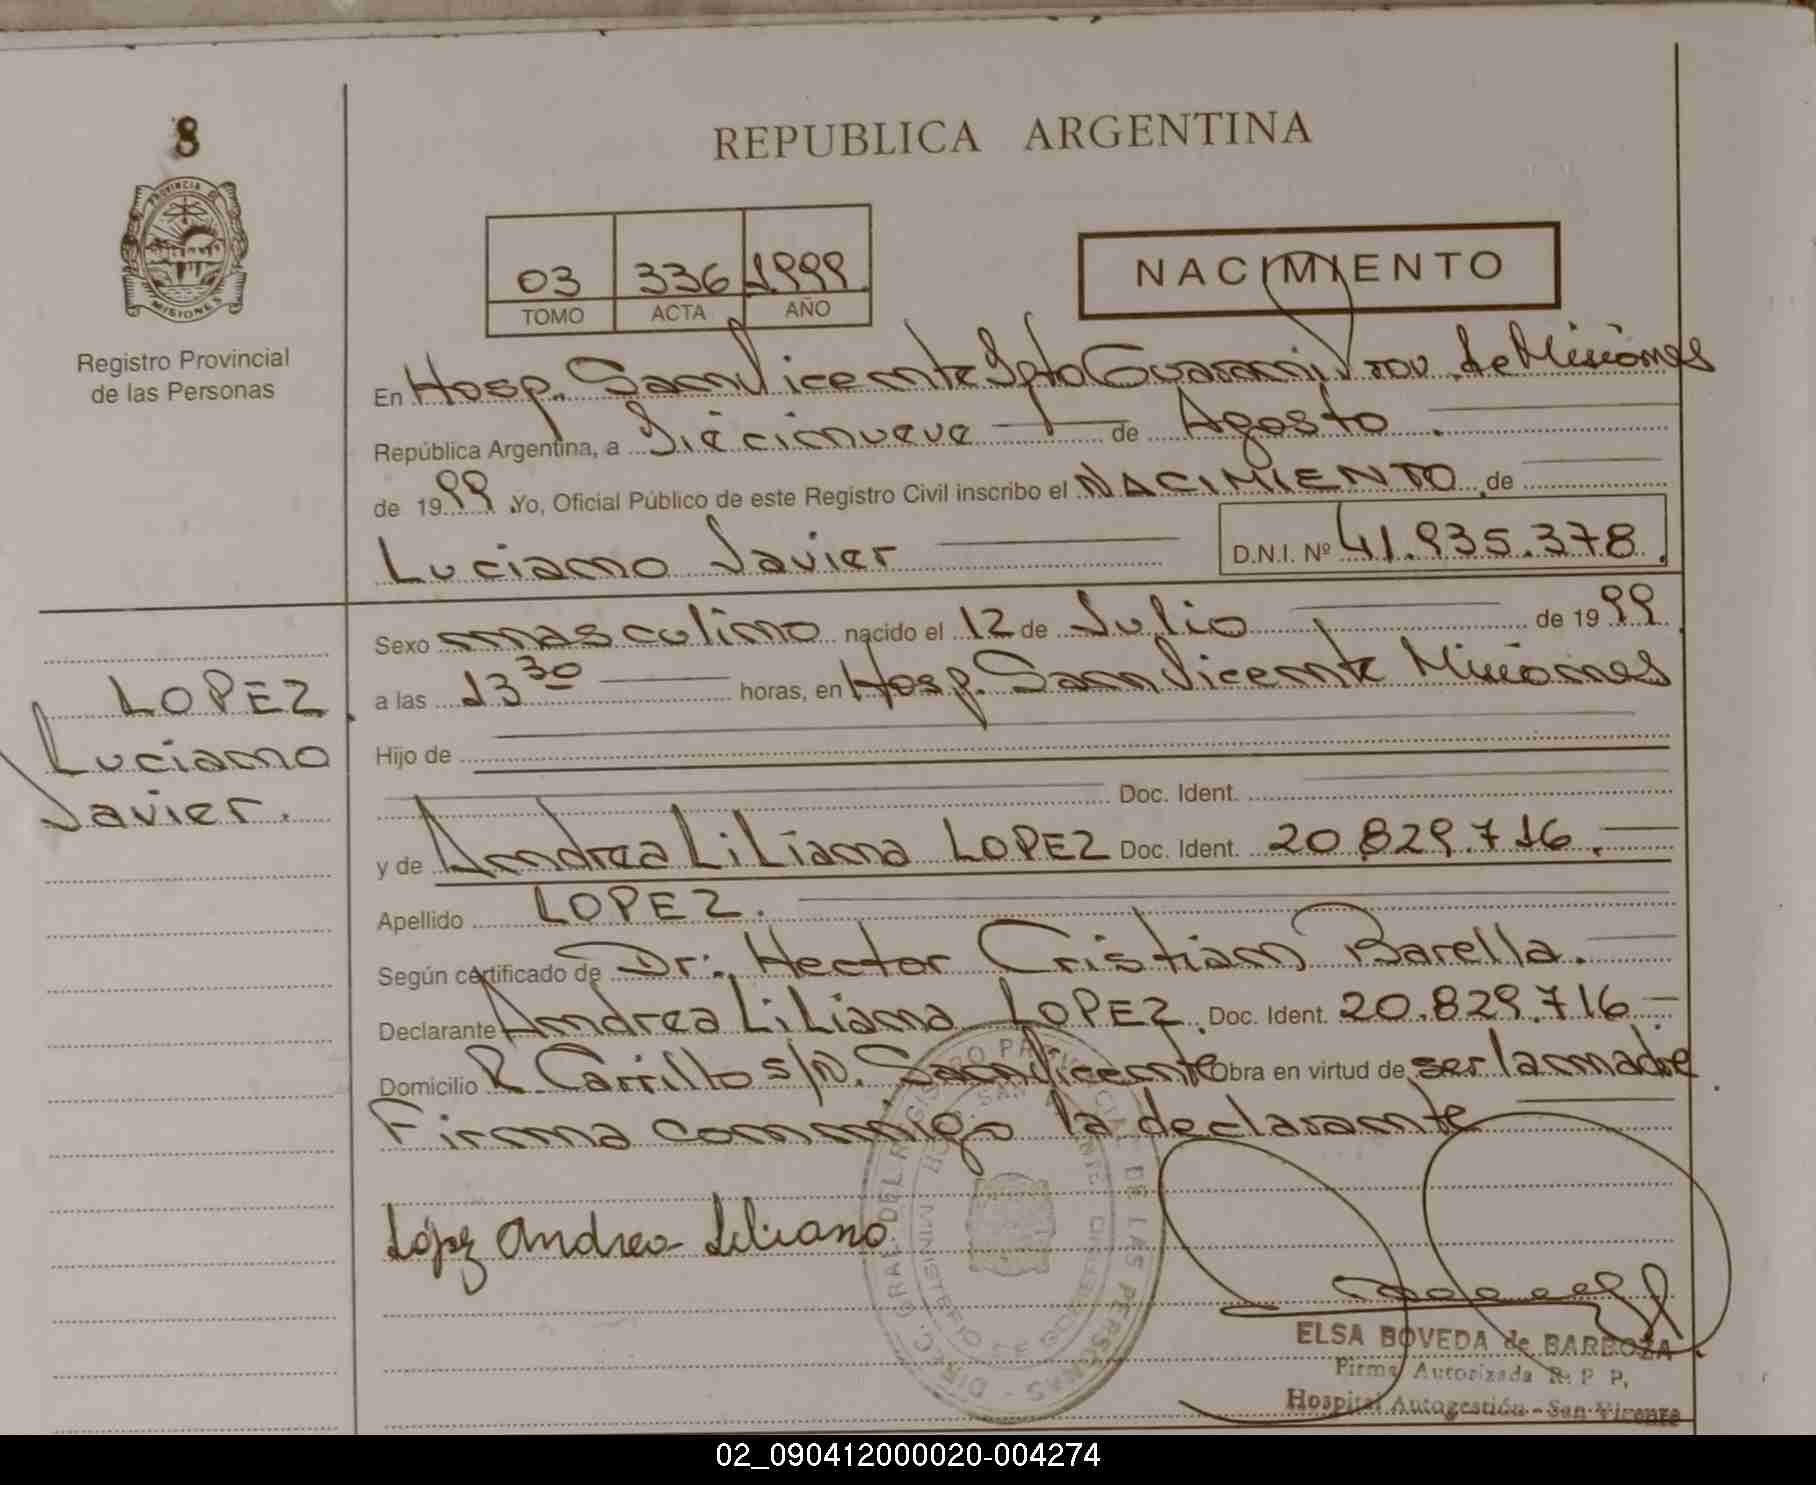 8
REPUBLICA ARGENTINA
PROVINCIA D
MISIONES
Registro Provincial
de las Personas
03 336 1999
TOMO ACTA AÑO
NACIMIENTO
En Hosp. San Vicente Dpto Guarani, Prov. de Misiones
República Argentina, a Diecinueve de Agosto.
de 1999 Yo, Oficial Público de este Registro Civil inscribo el NACIMIENTO de
Luciano Javier D.N.I. Nº 41.935.378.
Sexo masculino nacido el 12 de Julio de 1999
a las 13 30 horas, en Hosp. San Vicente Misiones
LOPEZ
Luciano
Javier.
Hijo de
Doc. Ident.
y de Andrea Liliana LOPEZ Doc. Ident. 20.829.716.
Apellido LOPEZ.
Según certificado de Dr: Hector Cristian Barella.
Declarante Andrea Liliana LOPEZ. Doc. Ident. 20.829.716
Domicilio R Carrillo s/n. San Vicente Obra en virtud de ser la madre
Firma conmigo la declarante
López Andrea Liliana
DIREC. GRAL. DEL REGISTRO PROVINCIAL DE LAS PERSONAS
MINISTERIO DE GOBIERNO
ELSA BOVEDA de BARBOZA
Firma Autorizada R. P. P.
Hospital Autogestión - San Vicente
02_090412000020-004274